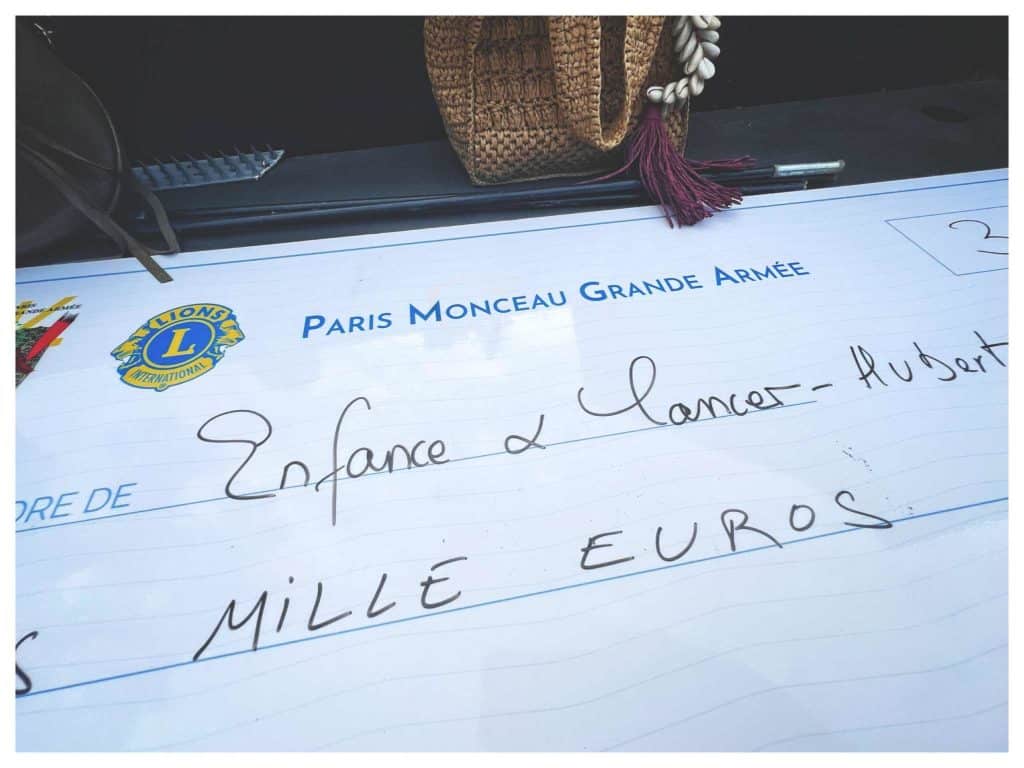 PARIS MONCEAU GRANDE ARMÉE
3
LIONS
L
INTERNATIONAL
Enfance & Cancer - Hubert
DRE DE
S MILLE EUROS